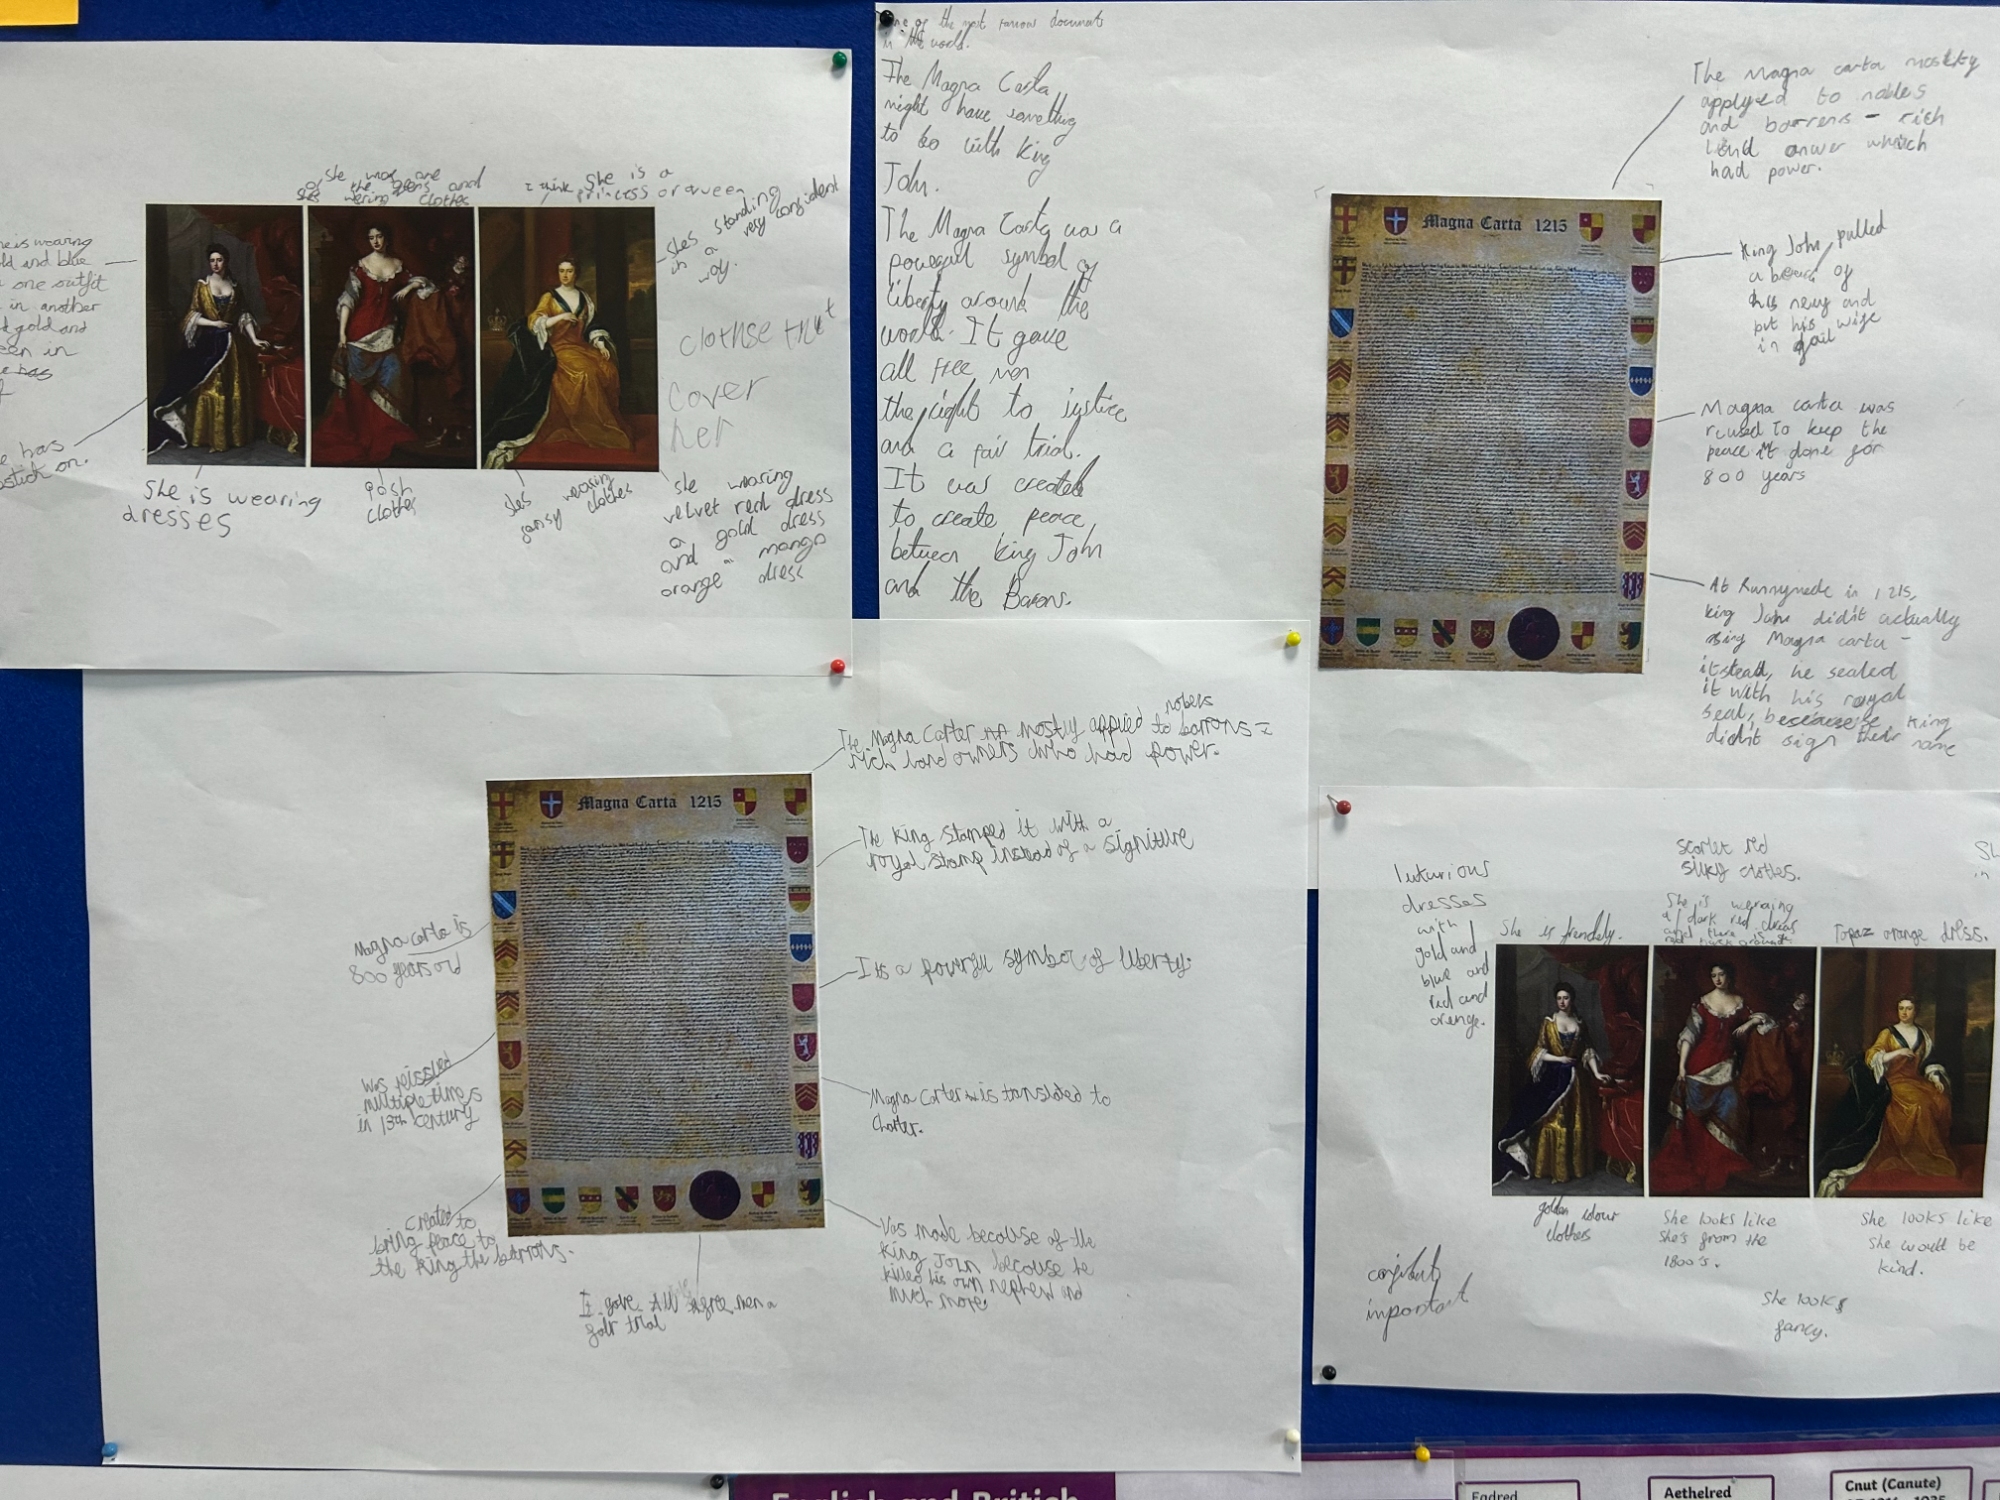 she is wearing
gold and blue
one outfit
in another
gold and
green in
has
lipstick on.
she is a
I think princess or queen
She's standing
in a very confident
way.
clothse that
cover
her
She is wearing
dresses
posh
clothes
shes wearing
fansy clothes
she wearing
velvet red dress
a gold dress
and mango
orange dress
One of the most famous documents
in the world.
The Magna Carta
might have something
to bo with King
John.
The Magna Carta was a
powerful symbol of
liberty around the
world. It gave
all free men
the right to justice
and a fair trial.
It was created
to create peace,
between King John
and the Barons.
Magna Carta 1215
The Magna carta mostly
applyed to nobles
and barrens - rich
land onwer which
had power.
King John pulled
a beard of
his and
put his wife
in jail
Magna carta was
to keep the
peace it done for
800 years
At Runnymede in 1215,
king John didn't actually
sing Magna carta -
itstead, he sealed
it with his royal
seal, because King
didn't sign their name
The Magna Carter mostly applied to nobels barrons =
rich land owners who had power.
Magna Carta 1215
The King stamped it with a
royal stamp instead of a signiture
Its a powrful symbol of liberty.
Magna Carter is translated to
Charter.
Was made because of the
King John because he
killed his own nephew and
much more.
Magna carta is
800 years old
Was reissued
multiple times
in 13th century
Created to
bring peace to
the king the barrons.
It gave All free men a
fair trial
luturious
dresses
with
gold and
blue and
red and
orenge.
scarlet red
silky clothes.
She is frendely.
She is weraing
a dark red dress
and there is a
Topaz orange dress.
golden colour
clothers
She looks like
she's from the
1800's.
She looks like
She would be
kind.
She looks
fancy.
confident
inportant
English and British
Eadred
Aethelred
Cnut (Canute)